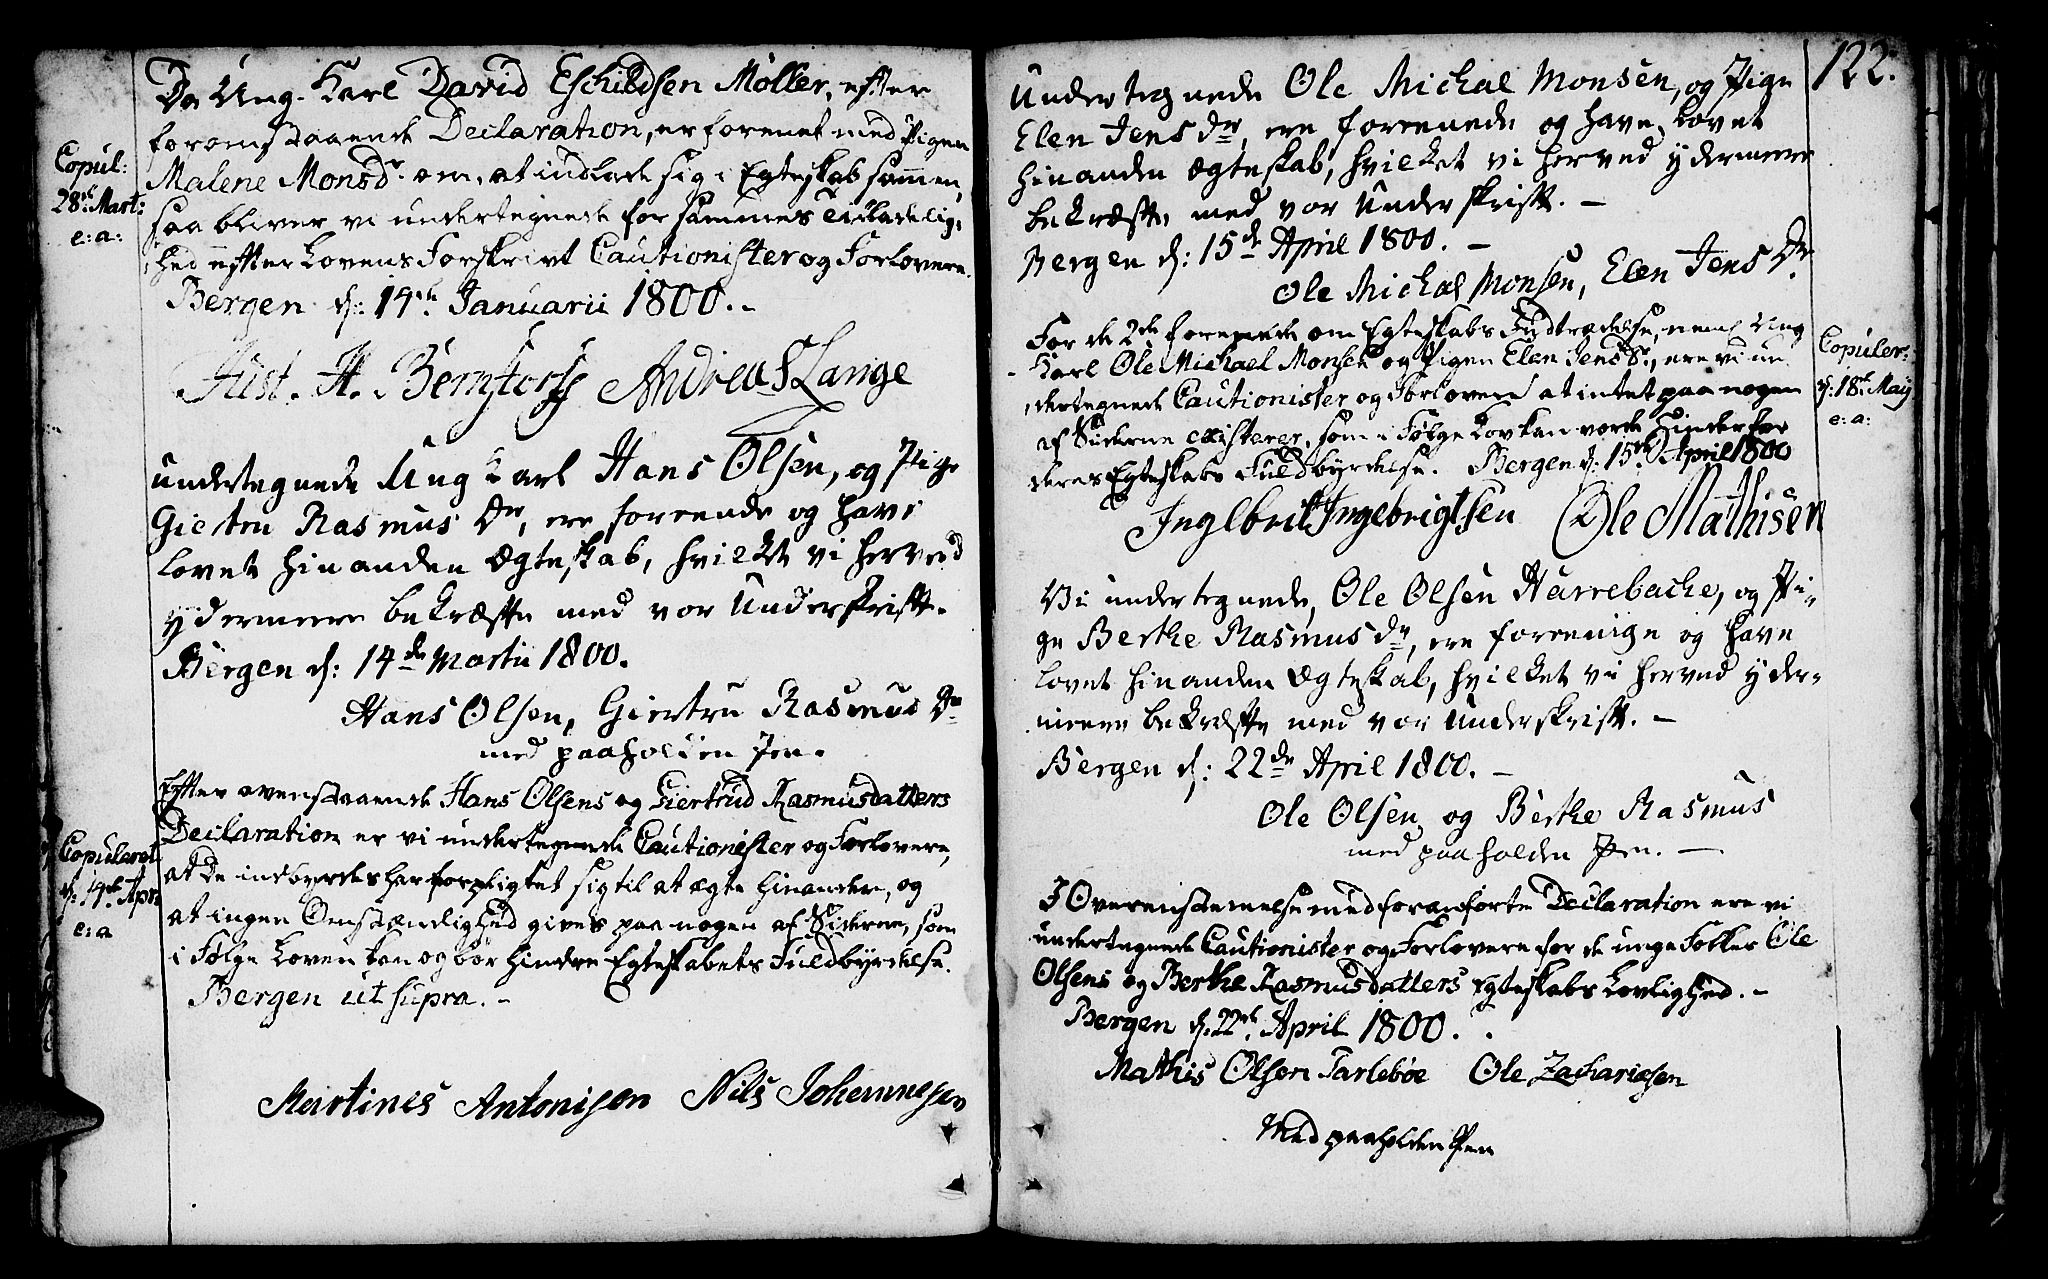 Da Ung-Karl David Eschildsen Møller, efter
foromstaaende Declaration, er foreenet med Pigen
Copul:
28de Mart:
e: a:
Malene Monsdr. om, at indlade sig i Egteskab sammen,
saa bliver vi undertegnede for sammes Tilladelig-
hed efter Lovens Forskrivt Cautionister og Forlovere.
Bergen d: 14de Januarii 1800.-
Just. H. Berntorfs Andreas Lange
undertegnede Ung karl Hans Olsen, og Pige
Giertru Rasmus Dr, ere foreende og have
lovet hinanden Ægteskab, hvilket vi herved
ydermeere bekræfte med vor Underskrift.
Bergen d: 14de Martii 1800.
Hans Olsen, Giertru Rasmus Dr
med paaholden Pen.
Efter ovenstaaende Hans Olsens og Giertrud Rasmusdatters
Declaration er vi undertegnede Cautionister og Forlovere,
Copuleret
d: 14de Apr:
e: a
at De indbyrdes har forpligtet sig til at ægte hinanden, og
at ingen Omstændighed gives paa nogen af Siderne, som
i Følge Loven kan og bør hindre Egteskabets Fuldbyrdelse.
Bergen ut supra.-
Martines Antonisen Nils Johannesen
122.
Undertegnede Ole Michal Monsen, og Pige
Elen Jens dr, ere foreenede og have Lovet
hinanden Ægteskab, hvilket vi herved ydermeere
bekræfte, med vor Underskrift. -
Bergen d: 15de April 1800. -
Ole Michal Monsen, Elen Jens Dr
For de 2de foreenede om Egteskabs Indtrædelse, neml Ung
Karl Ole Michael Monsen og Pigen Elen Jensdr., ere vi un-
dertegnede Cautionister og Forlovere at intet paa nogen
af Siderne existerer, som i Følge Lov kan vorde Hinder for
deres Egteskabs Fuldbyrdelse. Bergen d: 15de April 1800
Copuler:
d: 18de May
e: a:
Inglbrit Ingebrigtsen Ole Mathisen
Vi undertegnede, Ole Olsen Harrebacke, og Pi-
ge Berthe Rasmus dr, ere foreenige og have
lovet hinanden Ægteskab, hvilket vi herved yder-
meere bekræfte med vor Underskrift. -
Bergen d: 22de April 1800. -
Ole Olsen og Berthe Rasmus
med paaholden Pen. -
I Overensstemmelse med foranførte Declaration ere vi
undertegnede Cautionister og Forlovere for de unge Folkes Ole
Olsens og Berthe Rasmusdatters Egteskabs Lovlighed. -
Bergen d: 22de April 1800.
Mathis Olsen Tarlebøe Ole Zachariasen
Med paaholden Pen